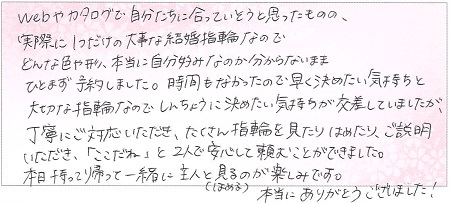 webやカタログで自分たちに合っていそうと思ったものの、
実際に1つだけの大事な結婚指輪なので
どんな色や形、本当に自分好みなのか分からないまま
ひとまず予約しました。時間もなかったので早く決めたい気持ちと
大切な指輪なのでしんちょうに決めたい気持ちが交差していましたが、
丁寧にご対応いただき、たくさん指輪を見たりはめたり、ご説明
いただき、「ここだね」と2人で安心して頼むことができました。
本日持って帰って一緒に主人と見るのが楽しみです。
(はめる)
本当にありがとうございました!